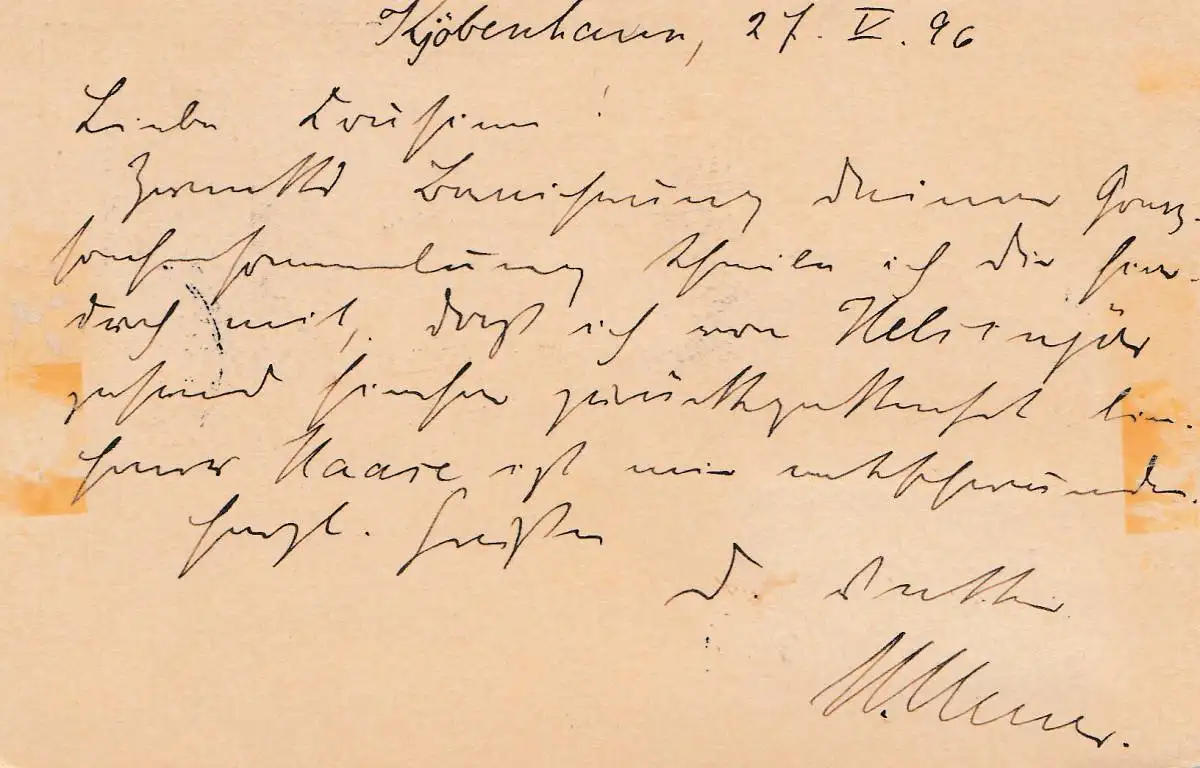 Kjöbenhavn, 27. V. 96
Liebe Cousine!
Zwecks Bereicherung Deiner Ganz-
sachensammlung theile ich Dir hier-
durch mit, daß ich von Helsingör
hierher zurückgekehrt bin.
Haase ist mir entschwunden.
Herzl. Grüßen
D. Vetter